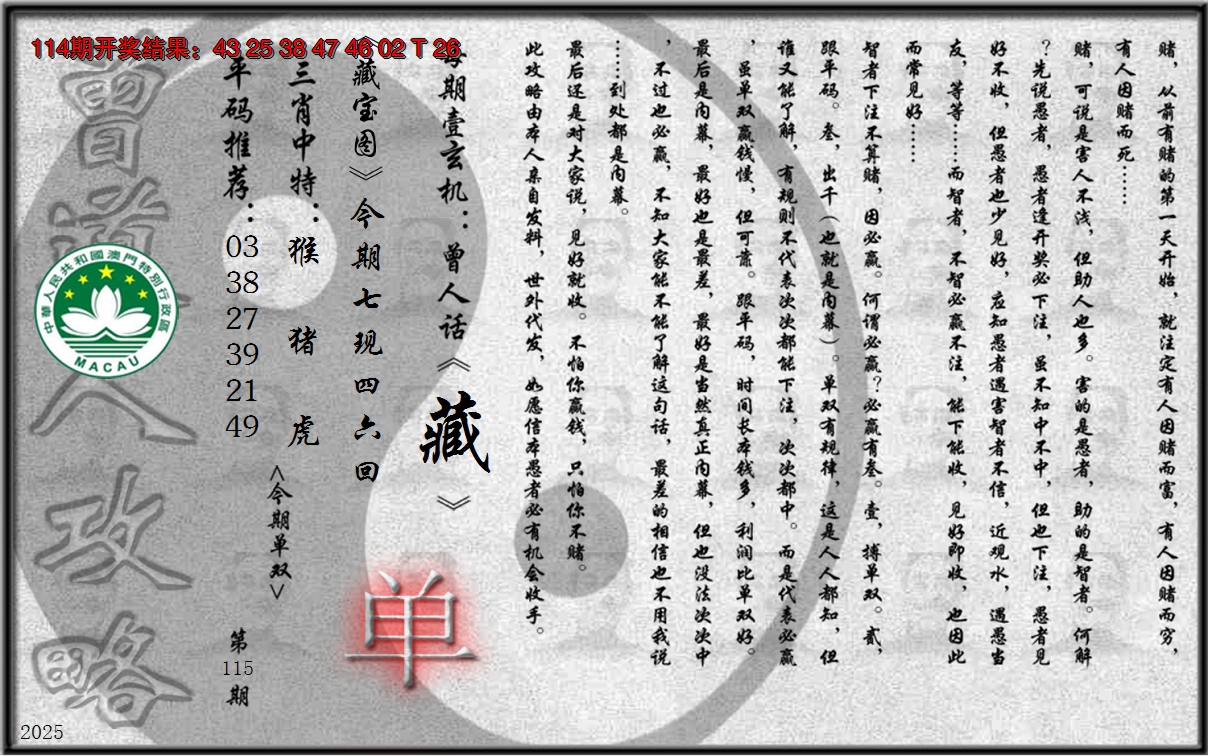 114期开奖结果：43 25 38 47 46 02 T 26
赌，从前有赌的第一天开始，就注定有人因赌而富，有人因赌而穷，
有人因赌而死……
赌，可说是害人不浅，但助人也多。害的是愚者，助的是智者。何解
？先说愚者，愚者逢开奖必下注，虽不知中不中，但也下注，愚者见
好不收，但愚者也少见好，应知愚者遇害智者不信，近观水，遇愚当
友，等等……而智者，不智必赢不注，能下能收，见好即收，也因此
而常见好……
智者下注不算赌，因必赢。何谓必赢？必赢有叁。壹，搏单双。贰，
跟平码。叁，出千（也就是内幕）。单双有规律，这是人人都知，但
谁又能了解，有规则不代表次次都能下注，次次都中。而是代表必赢
，虽单双赢钱慢，但可靠。跟平码，时间长本钱多，利润比单双好。
最后是内幕，最好也是最差，最好是当然真正内幕，但也没法次次中
，不过也必赢，不知大家能不能了解这句话，最差的相信也不用我说
……到处都是内幕。
最后还是对大家说，见好就收。不怕你赢钱，只怕你不赌。
此攻略由本人亲自发料，世外代发，如愿信本愚者必有机会收手。
每期壹玄机：曾人话《藏》
《藏宝图》今期七现四六回
三肖中特：猴 猪 虎
平码推荐：03 38 27 39 21 49
<今期单双>
单
第115期
曾道人攻略
中華人民共和國澳門特別行政區
MACAU
2025